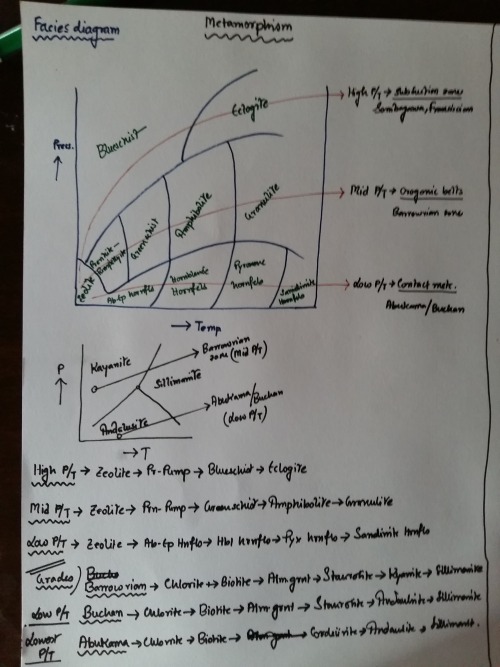 Facies diagram
Metamorphism
Pres.
Blueschist
Eclogite
Zeolite
Prenhite-
Pumpellyite
Greenschist
Amphibolite
Granulite
Ab-Ep hornfls
Hornblende
Hornfels
Pyroxene
hornfels
Sanidinite
Hornfels
→ Temp
High P/T → Subduction zone
Sanbagawa, Franciscian
Mid P/T → Orogenic belts
Barrowian zone
Low P/T → Contact met.
Abukama/Buchan
P
Kayanite
Sillimanite
Andalusite
→ T
Barrowian
zone (Mid P/T)
Abukama/
Buchan
(Low P/T)
High P/T → Zeolite → Pr-Pump → Blueschist → Eclogite
Mid P/T → Zeolite → Prn-Pmp → Greenschist → Amphibolite → Granulite
Low P/T → Zeolite → Ab-Ep Hnflo → Hbl Hrnflo → Pyx hrnflo → Sandinit Hrnflo
Grades)
Barrowian → Chlorite → Biotite → Alm grnt → Staurotite → Kyanite → Sillimanite
Low P/T Buchan → Chlorite → Biotite → Alm grnt → Staurotite → Andaulsite → Sillimanite
Lowest P/T Abukama → Chlorite → Biotite → Cordeirite → Andaulite → Sillimanit.